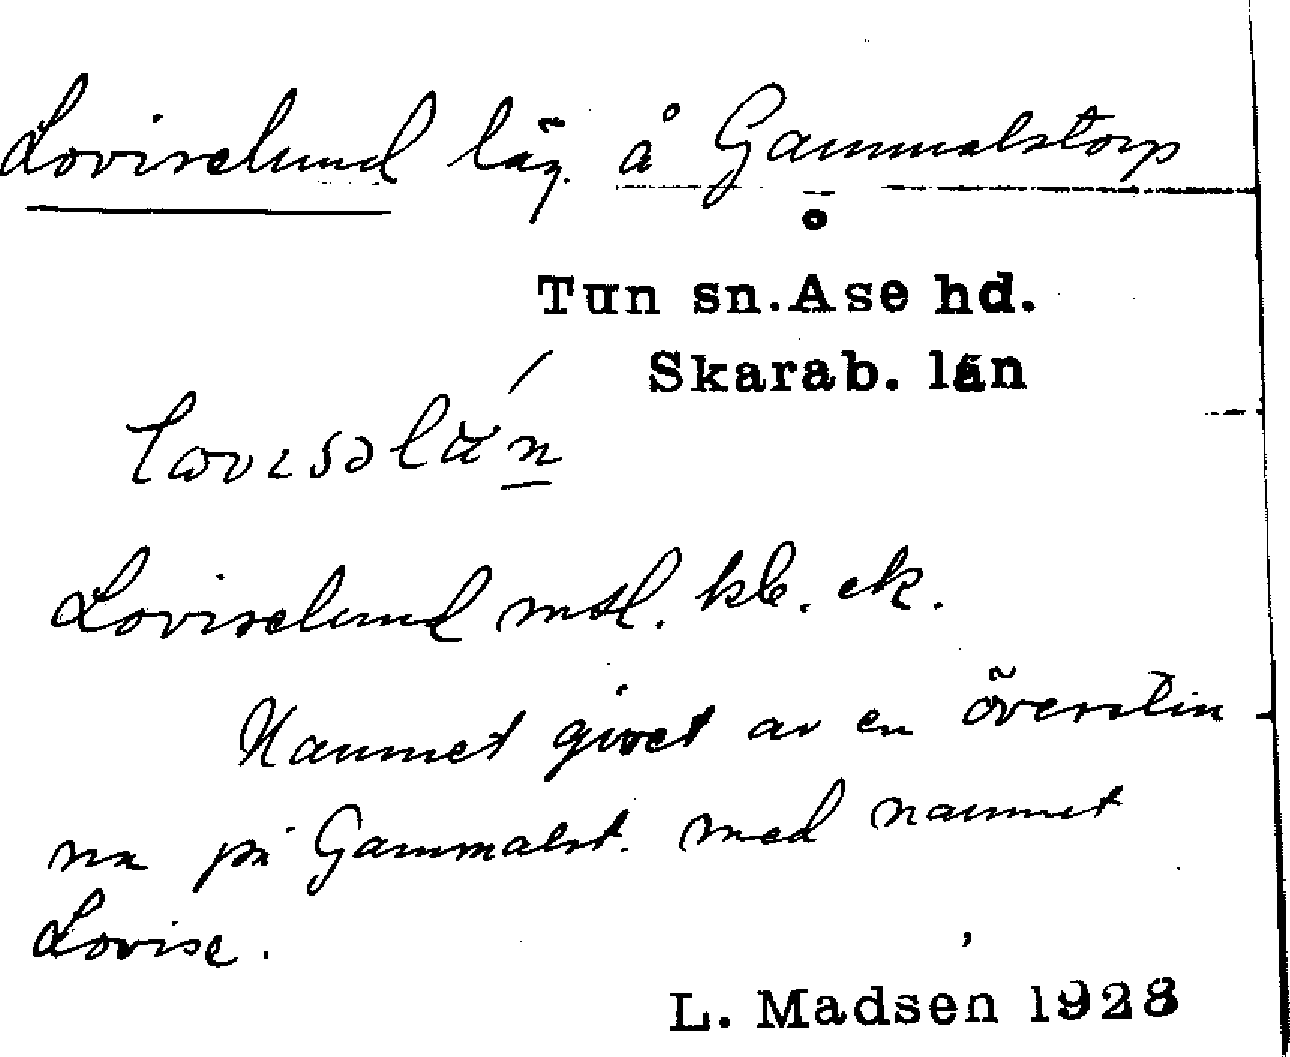 Loviselund läg. å Gammalstorp
Tun sn. Åse hd.
Skarab. län
Loviselund msl. kb. ek.
Namnet givet av en överstin
na på Gammalst. med namnet
Lovise.
L. Madsen 1928